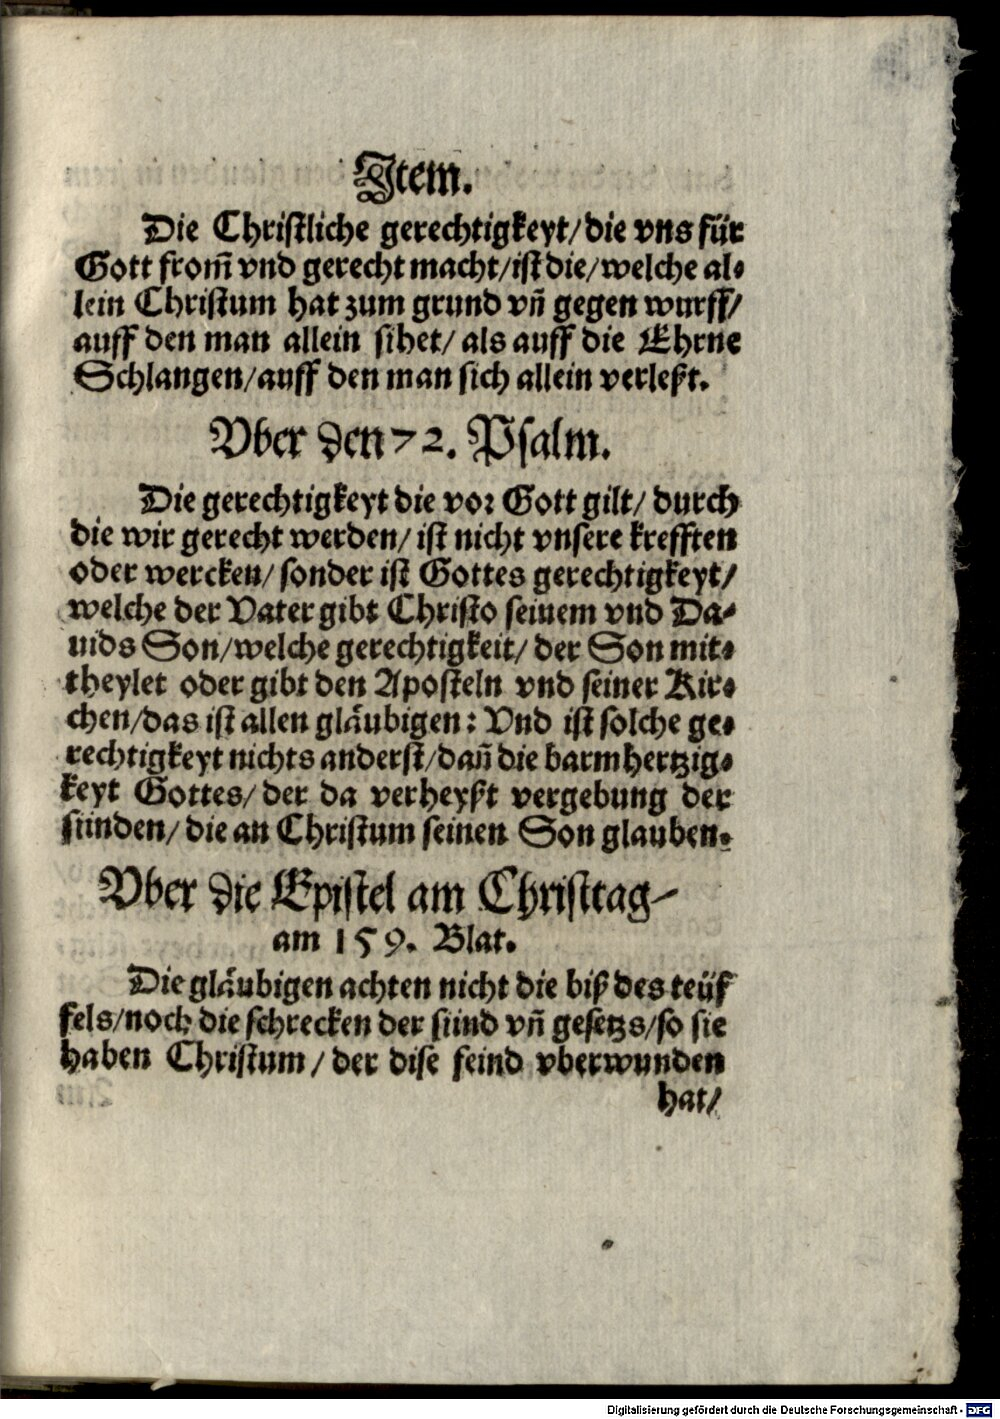 Item.
Die Christliche gerechtigkeyt/die vns für
Gott from̃ vnd gerecht macht/ist die/welche al-
lein Christum hat zum grund vñ gegen wurff/
auff den man allein sihet/ als auff die Ehrne
Schlangen/auff den man sich allein verleßt.
Vber den 72. Psalm.
Die gerechtigkeyt die vor Gott gilt/ durch
die wir gerecht werden/ ist nicht vnsere krefften
oder wercken/ sonder ist Gottes gerechtigkeyt/
welche der Vater gibt Christo seinem vnd Da-
uids Son/welche gerechtigkeit/ der Son mit-
theylet oder gibt den Aposteln vnd seiner Kir-
chen/das ist allen glaͤubigen: Vnd ist solche ge-
rechtigkeyt nichts anderst/dañ die barmhertzig-
keyt Gottes/ der da verheyßt vergebung der
sünden/ die an Christum seinen Son glauben.
Vber die Epistel am Christtag-
am 159. Blat.
Die glaͤubigen achten nicht die biß des teüf
fels/noch die schrecken der sünd vñ gesetzs/so sie
haben Christum/ der dise feind vberwunden
hat/
Digitalisierung gefördert durch die Deutsche Forschungsgemeinschaft - DFG